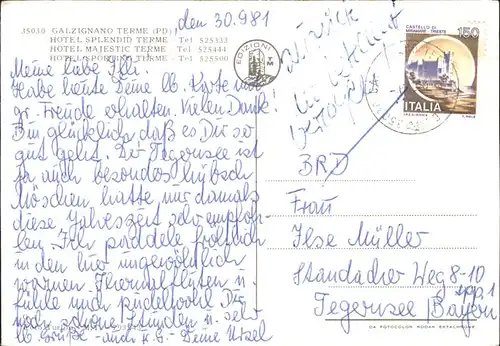 35030 GALZIGNANO TERME (PD)
HOTEL SPLENDID TERME - Tel 525333
HOTEL MAJESTIC TERME - Tel 525444
HOTEL SPORTING TERME - Tel 525500
den 30.9.81
Meine liebe Ille.
Habe heute Deine lb. Karte m.
gr. Freude erhalten. Vielen Dank.
Bin glücklich daß es Dir so
gut geht. Der Tegernsee ist
ja auch besonders hübsch
hatte nur damals
diese Jahreszeit sehr empfoh-
len. Ich paddele fröhlich
in den hier ungewöhlich
warmen Thermalfluten u.
fühle mich pudelwohl. Dir
noch schöne Stunden u. sehr
lb. Grüße - auch v. G. - Deine Ursel
EDIZIONI
zurück
verzogen
CASTELLO DI
MIRAMARE - TRIESTE
150
ITALIA
BRD
Frau
Ilse Müller
Standacher Weg 8-10
App. 1
Tegernsee / Bayern
DA FOTOCOLOR KODAK EKTACHROME